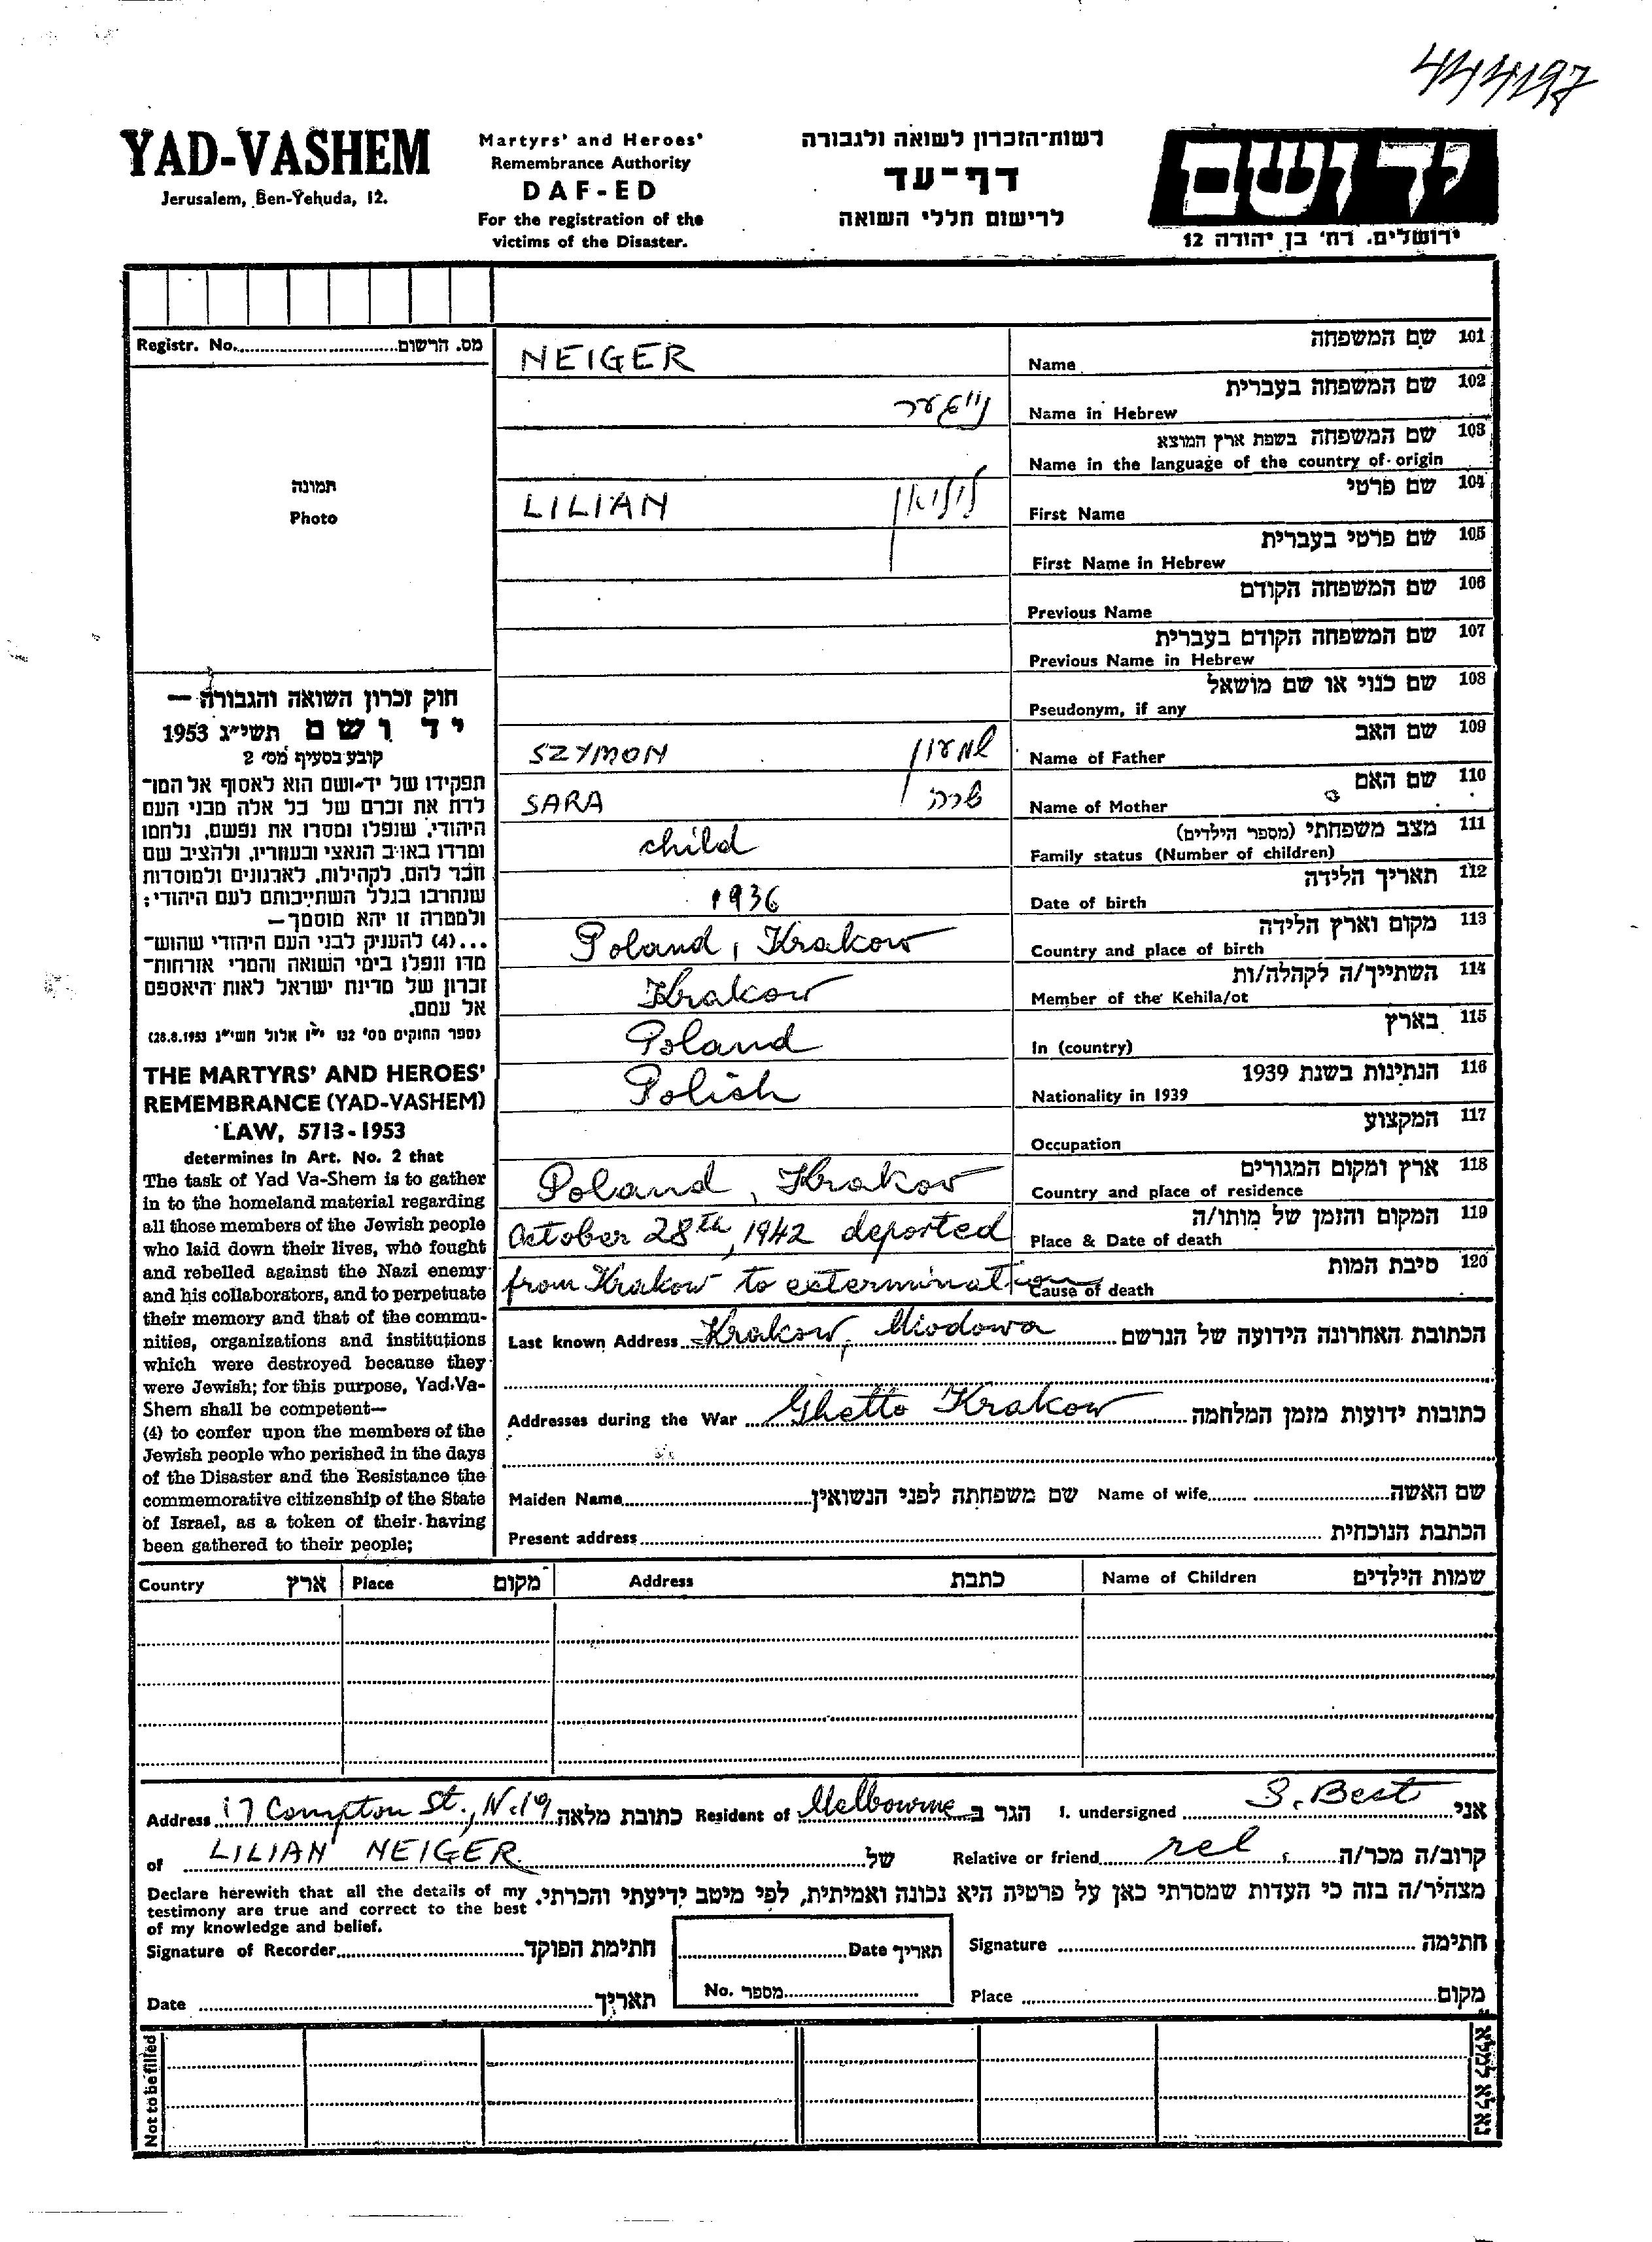 444197
YAD-VASHEM
Jerusalem, Ben-Yehuda, 12.
Martyrs' and Heroes'
Remembrance Authority
DAF-ED
For the registration of the
victims of the Disaster.
רשות־הזכרון לשואה ולגבורה
דף־עד
לרישום חללי השואה
יד ושם
ירושלים, רח' בן יהודה 12
Registr. No. מס. הרשום
תמונה
Photo
NEIGER
שם המשפחה 101
Name
נייגער
שם המשפחה בעברית 102
Name in Hebrew
שם המשפחה בשפת ארץ המוצא 103
Name in the language of the country of origin
LILIAN ליליאן
שם פרטי 104
First Name
שם פרטי בעברית 105
First Name in Hebrew
שם המשפחה הקודם 106
Previous Name
שם המשפחה הקודם בעברית 107
Previous Name in Hebrew
שם כנוי או שם מושאל 108
Pseudonym, if any
SZYMON שמעון
שם האב 109
Name of Father
SARA שרה
שם האם 110
Name of Mother
child
מצב משפחתי (מספר הילדים) 111
Family status (Number of children)
1936
תאריך הלידה 112
Date of birth
Poland, Krakow
מקום וארץ הלידה 113
Country and place of birth
Krakow
השתייך/ה לקהלה/ות 114
Member of the Kehila/ot
Poland
בארץ 115
In (country)
Polish
הנתינות בשנת 1939 116
Nationality in 1939
המקצוע 117
Occupation
Poland, Krakow
ארץ ומקום המגורים 118
Country and place of residence
October 28th, 1942 deported
המקום והזמן של מותו/ה 119
Place & Date of death
from Krakow to extermination
סיבת המות 120
Cause of death
חוק זכרון השואה והגבורה —
יד ושם תשי״ג 1953
קובע בסעיף מס' 2
תפקידו של יד־ושם הוא לאסוף אל המו־
לדת את זכרם של כל אלה מבני העם
היהודי, שנפלו ומסרו את נפשם, נלחמו
ומרדו באויב הנאצי ובעוזריו, ולהציב שם
וזכר להם, לקהילות, לארגונים ולמוסדות
שנחרבו בגלל השתייכותם לעם היהודי;
ולמטרה זו יהא מוסמך—
...(4) להעניק לבני העם היהודי שהוש־
מדו ונפלו בימי השואה והמרי אזרחות־
זכרון של מדינת ישראל לאות היאספם
אל עמם.
(ספר החוקים מס' 132 י״ז אלול תשי״ג 28.8.1953)
THE MARTYRS' AND HEROES'
REMEMBRANCE (YAD-VASHEM)
LAW, 5713-1953
determines in Art. No. 2 that
The task of Yad Va-Shem is to gather
in to the homeland material regarding
all those members of the Jewish people
who laid down their lives, who fought
and rebelled against the Nazi enemy
and his collaborators, and to perpetuate
their memory and that of the commu-
nities, organizations and institutions
which were destroyed because they
were Jewish; for this purpose, Yad-Va-
Shem shall be competent—
(4) to confer upon the members of the
Jewish people who perished in the days
of the Disaster and the Resistance the
commemorative citizenship of the State
of Israel, as a token of their having
been gathered to their people;
Last known Address Krakow, Miodowa הכתובת האחרונה הידועה של הנרשם
Addresses during the War Ghetto Krakow כתובות ידועות מזמן המלחמה
Maiden Name שם משפחתה לפני הנשואין Name of wife שם האשה
Present address הכתבת הנוכחית
Country ארץ Place מקום Address כתבת Name of Children שמות הילדים
Address 17 Compton St., N.19 כתובת מלאה Resident of Melbourne הגר ב I. undersigned S. Best אני
of LILIAN NEIGER של Relative or friend rel קרוב/ה מכר/ה
Declare herewith that all the details of my
testimony are true and correct to the best
of my knowledge and belief.
מצהיר/ה בזה כי העדות שמסרתי כאן על פרטיה היא נכונה ואמיתית, לפי מיטב ידיעתי והכרתי.
Signature of Recorder חתימת הפוקד Date תאריך Signature חתימה
Date תאריך No. מספר Place מקום
Not to be filled נא לא למלא